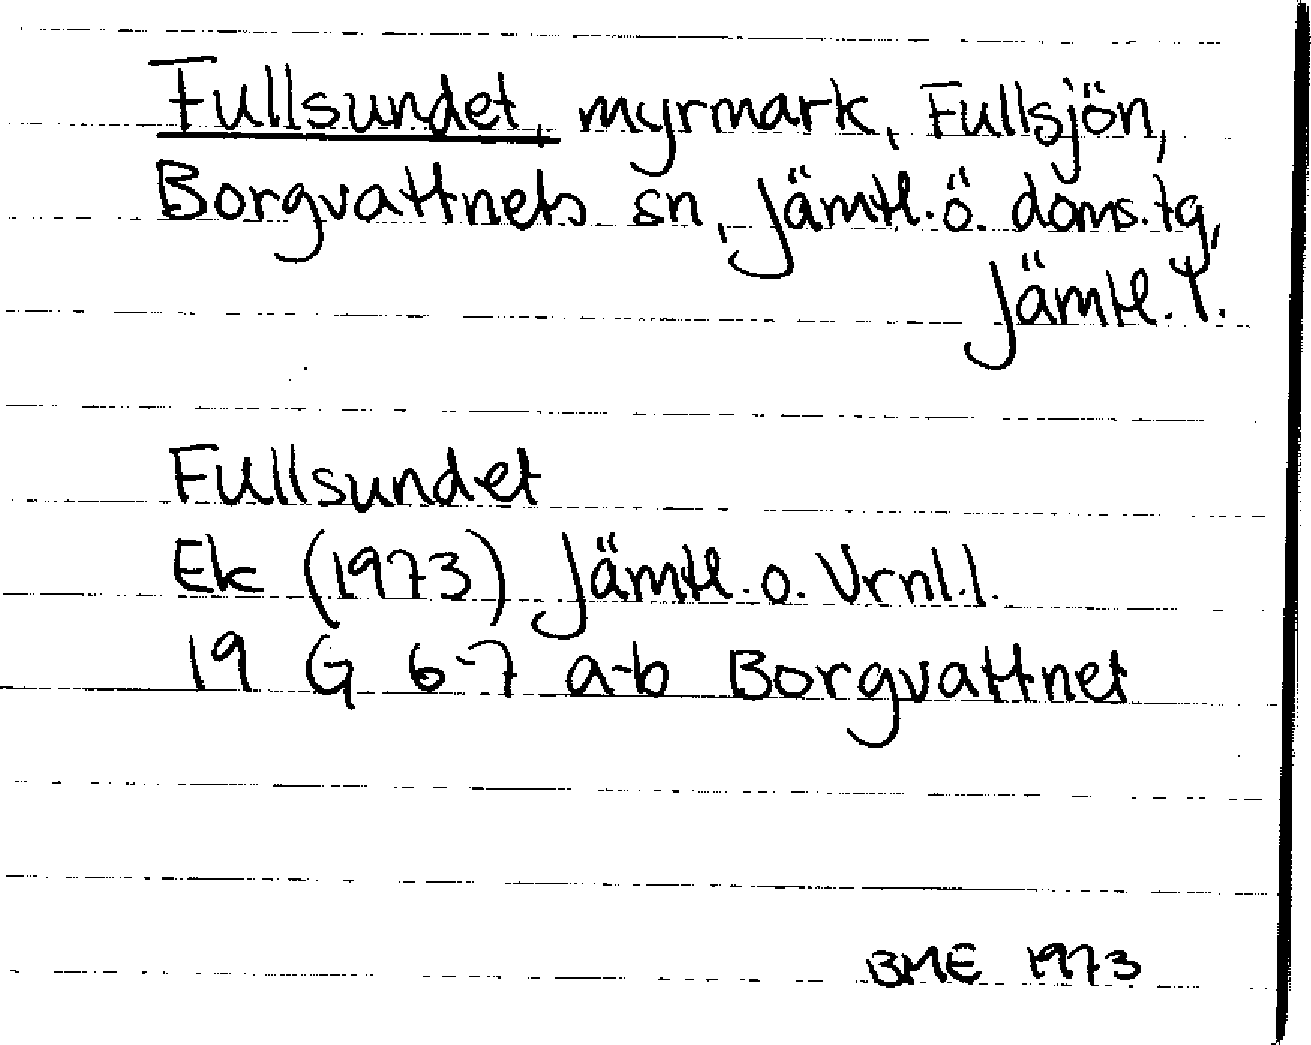 Fullsundet, myrmark, Fullsjön,
Borgvattnets sn, Jämtl. ö. doms. tg,
Jämtl. l.
Fullsundet
Ek (1973) Jämtl. o. Vrnl. l.
19 G 6-7 a-b Borgvattnet
BME 1973